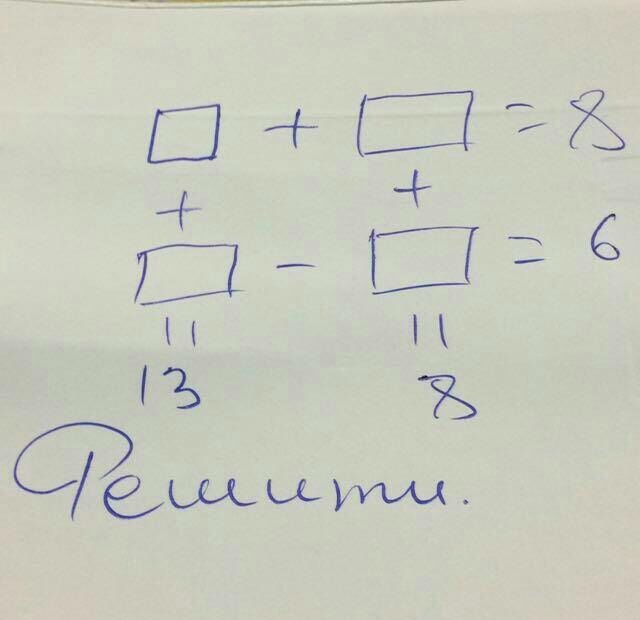 □ + □ = 8
+ +
□ - □ = 6
= =
13 8
Решити.